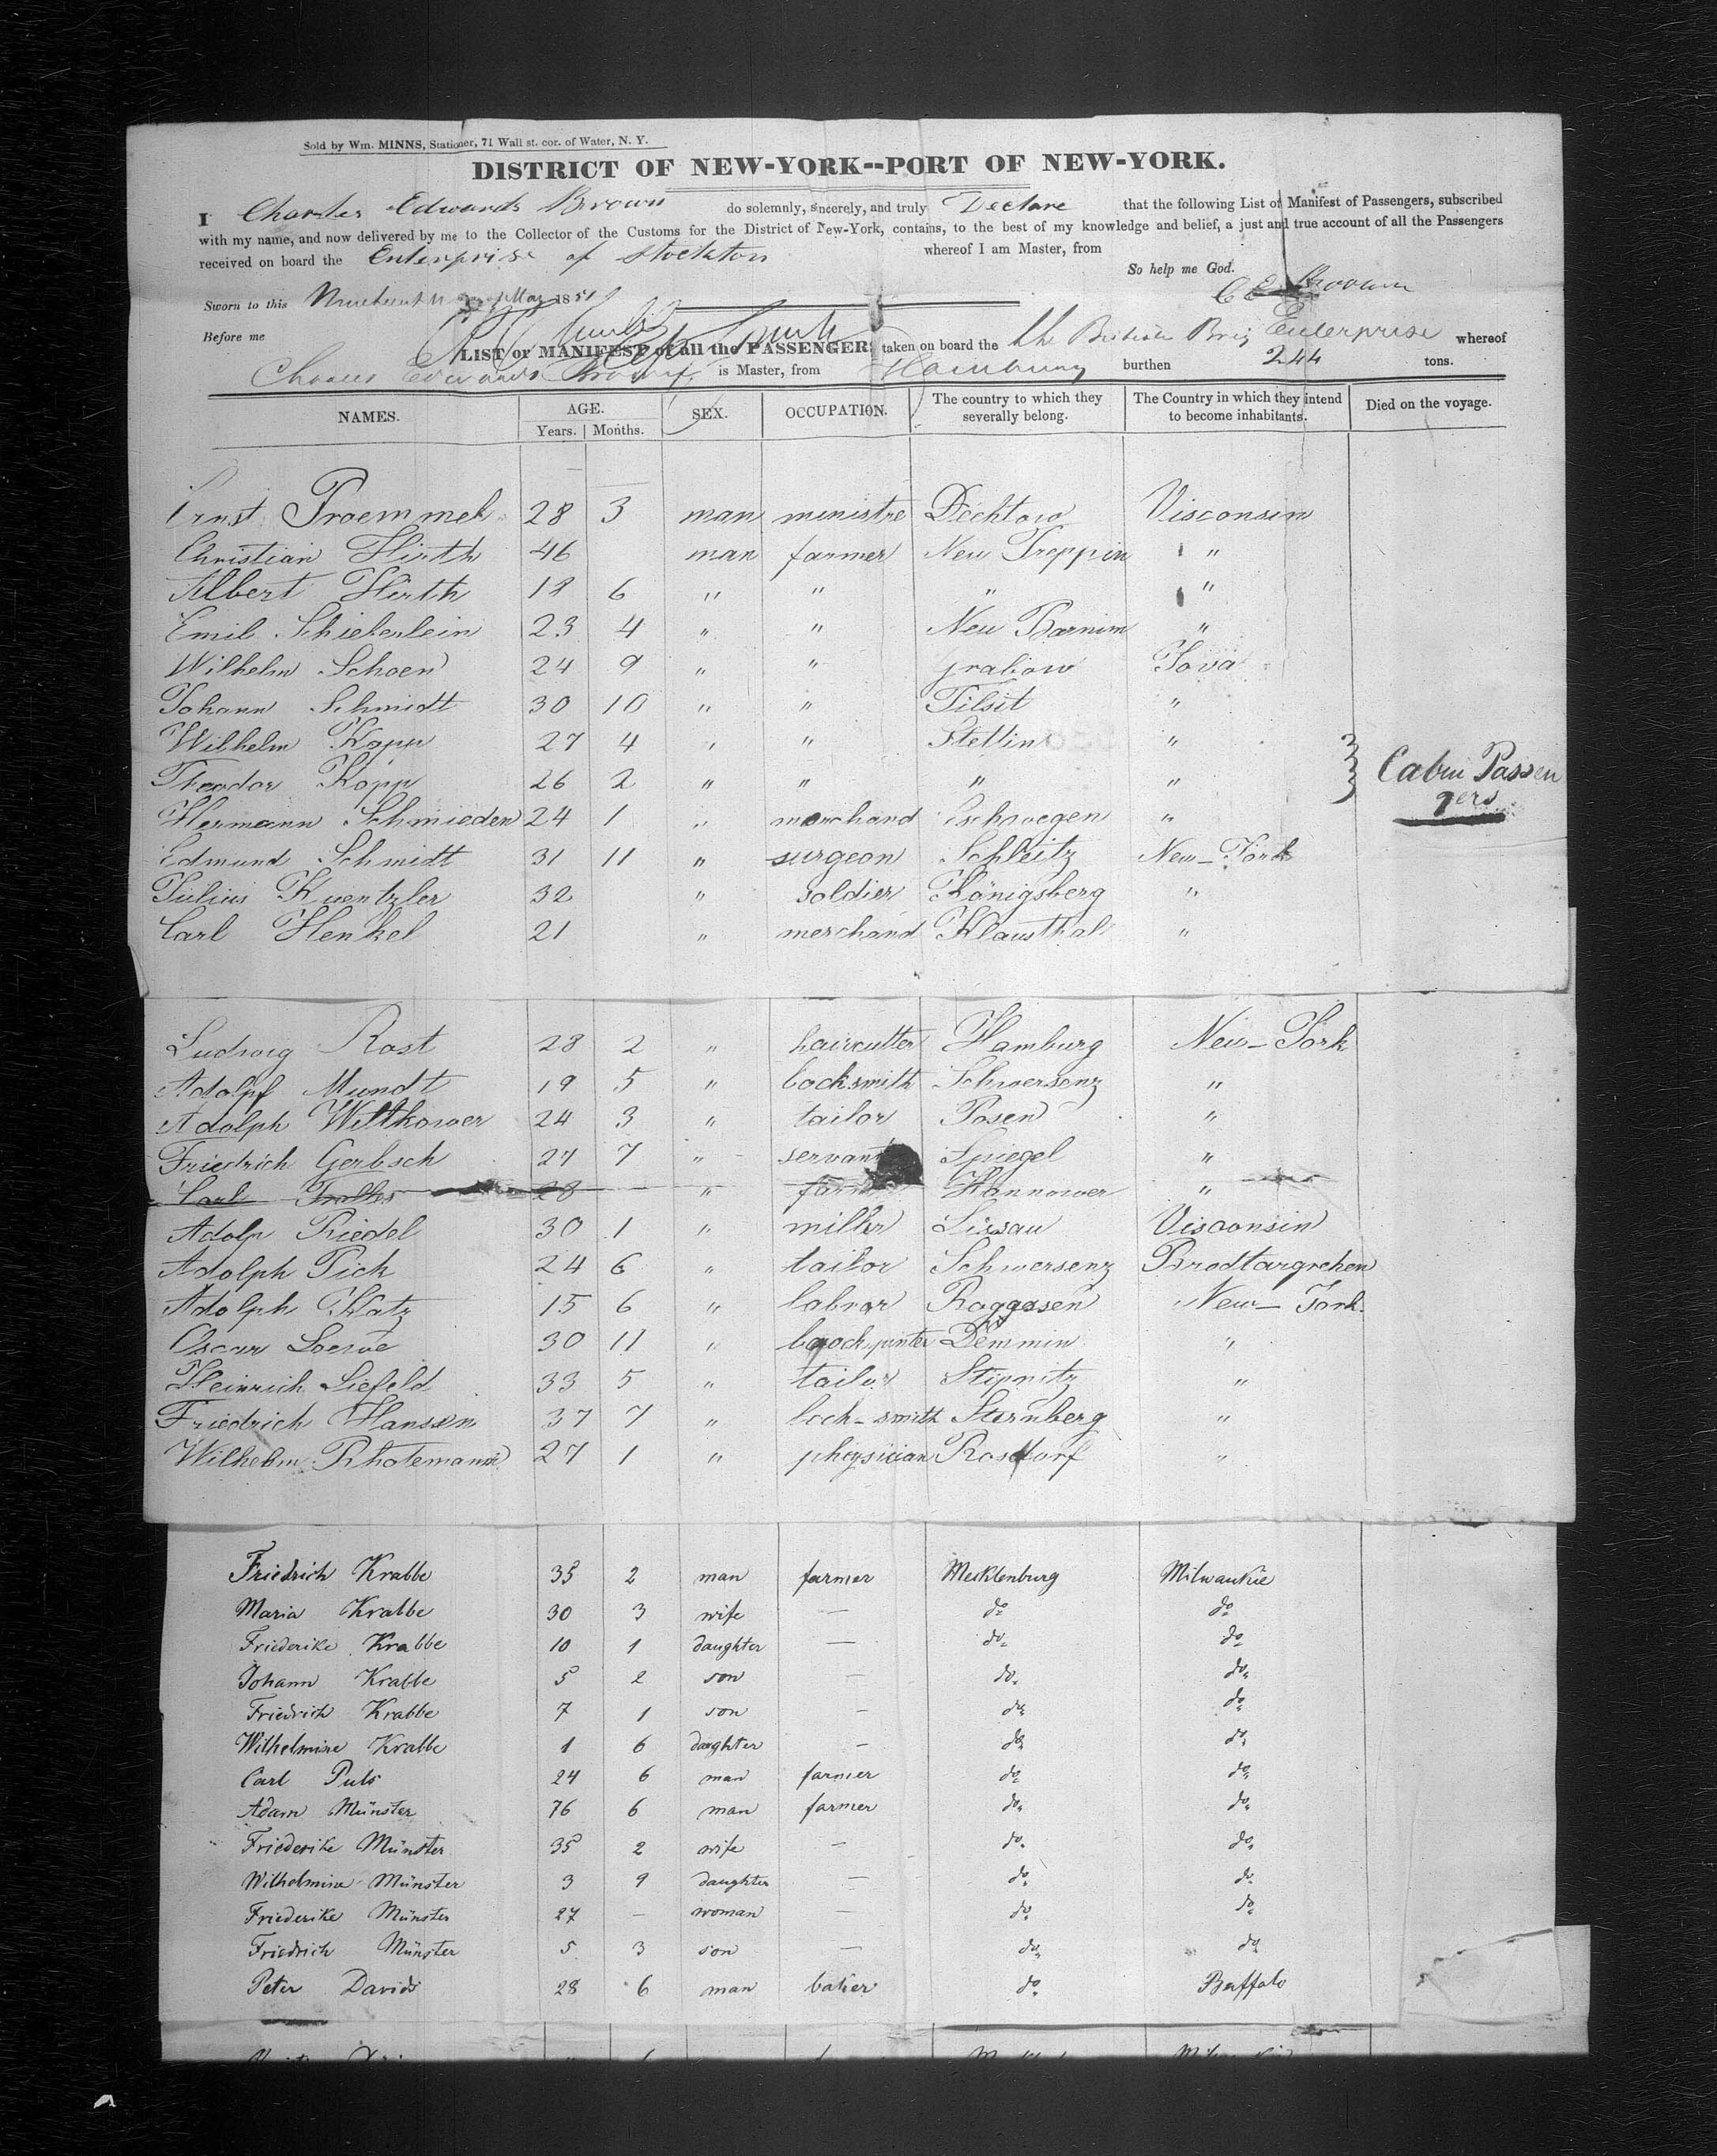 Sold by Wm. MINNS, Stationer, 71 Wall st. cor. of Water, N. Y.
DISTRICT OF NEW-YORK--PORT OF NEW-YORK.
I Charles Edwards Brown do solemnly, sincerely, and truly Declare that the following List or Manifest of Passengers, subscribed
with my name, and now delivered by me to the Collector of the Customs for the District of New-York, contains, to the best of my knowledge and belief, a just and true account of all the Passengers
received on board the Enterprise of Stockton whereof I am Master, from
So help me God.
Sworn to this May 1851 C E Brown
Before me
LIST or MANIFEST of all the PASSENGERS taken on board the the British Brig Enterprise whereof
Charles Edwards Brown is Master, from Hamburg burthen 244 tons.
NAMES. AGE. SEX. OCCUPATION. The country to which they severally belong. The Country in which they intend to become inhabitants. Died on the voyage.
Years. Months.
Ernst Proemmel 28 3 man ministre Dechtow Visconsin
Christian Hirth 46 man farmer Neu Treppin "
Albert Hirth 18 6 " " " "
Emil Schiebenlein 23 4 " " Neu Barnim "
Wilhelm Schoen 24 9 " " grabow Iova
Johann Schmidt 30 10 " " Tilsit "
Wilhelm Kopp 27 4 " " Stettin "
Theodor Kopp 26 2 " " " "
Cabin Passengers
Hermann Schmieden 24 1 " merchand Eschwegen "
Edmund Schmidt 31 11 " surgeon Schleitz New-York
Julius Kuentzler 32 " soldier Königsberg "
Carl Henkel 21 " merchand Klausthal "
Ludwig Rost 28 2 " haircutter Hamburg New-York
Adolpf Mundt 19 5 " locksmith Schwersenz "
Adolph Wittkower 24 3 " tailor Posen "
Friedrich Gerbsch 27 7 " servant Spiegel "
Carl 28 " farm Hannower "
Adolp Riedel 30 1 " miller Lissau Visconsin
Adolph Pick 24 6 " tailor Schwersenz Brodtargrehen
Adolph Katz 15 6 " labrar Roggasen New-York
Oscar Loewe 30 11 " Demmin "
Heinrich Liefeld 33 5 " tailor Stipnitz "
Friedrich Hansen 37 7 " lock-smith Sternberg "
Wilhelm Rhotemann 27 1 " physician Rosdorf "
Friedrich Krabbe 35 2 man farmer Mecklenburg Milwaukie
Maria Krabbe 30 3 wife — do do
Friederike Krabbe 10 1 daughter — do do
Johann Krabbe 5 2 son — do do
Friedrich Krabbe 7 1 son — do do
Wilhelmine Krabbe 1 6 daughter — do do
Carl Puls 24 6 man farmer do do
Adam Münster 76 6 man farmer do do
Friederike Münster 35 2 wife — do do
Wilhelmine Münster 3 9 daughter — do do
Friederike Münster 27 — woman — do do
Friedrich Münster 5 3 son — do do
Peter Davids 28 6 man baker do Buffalo